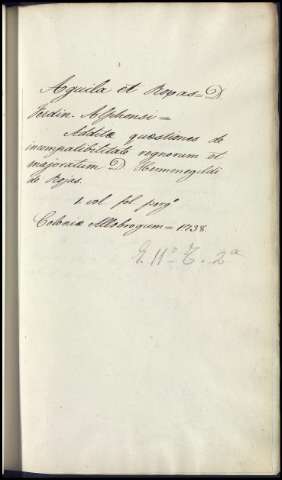 Aguila et Roxas = D.
Ferdin. Alphonsi =
Additæ quæstiones de
incompatibilitate regnorum et
majoratum D. Hermenegildi
de Rojas.
1. vol fol perg.º
Coloniæ Allobrogum = 1738.
E. 11º T. 2ª